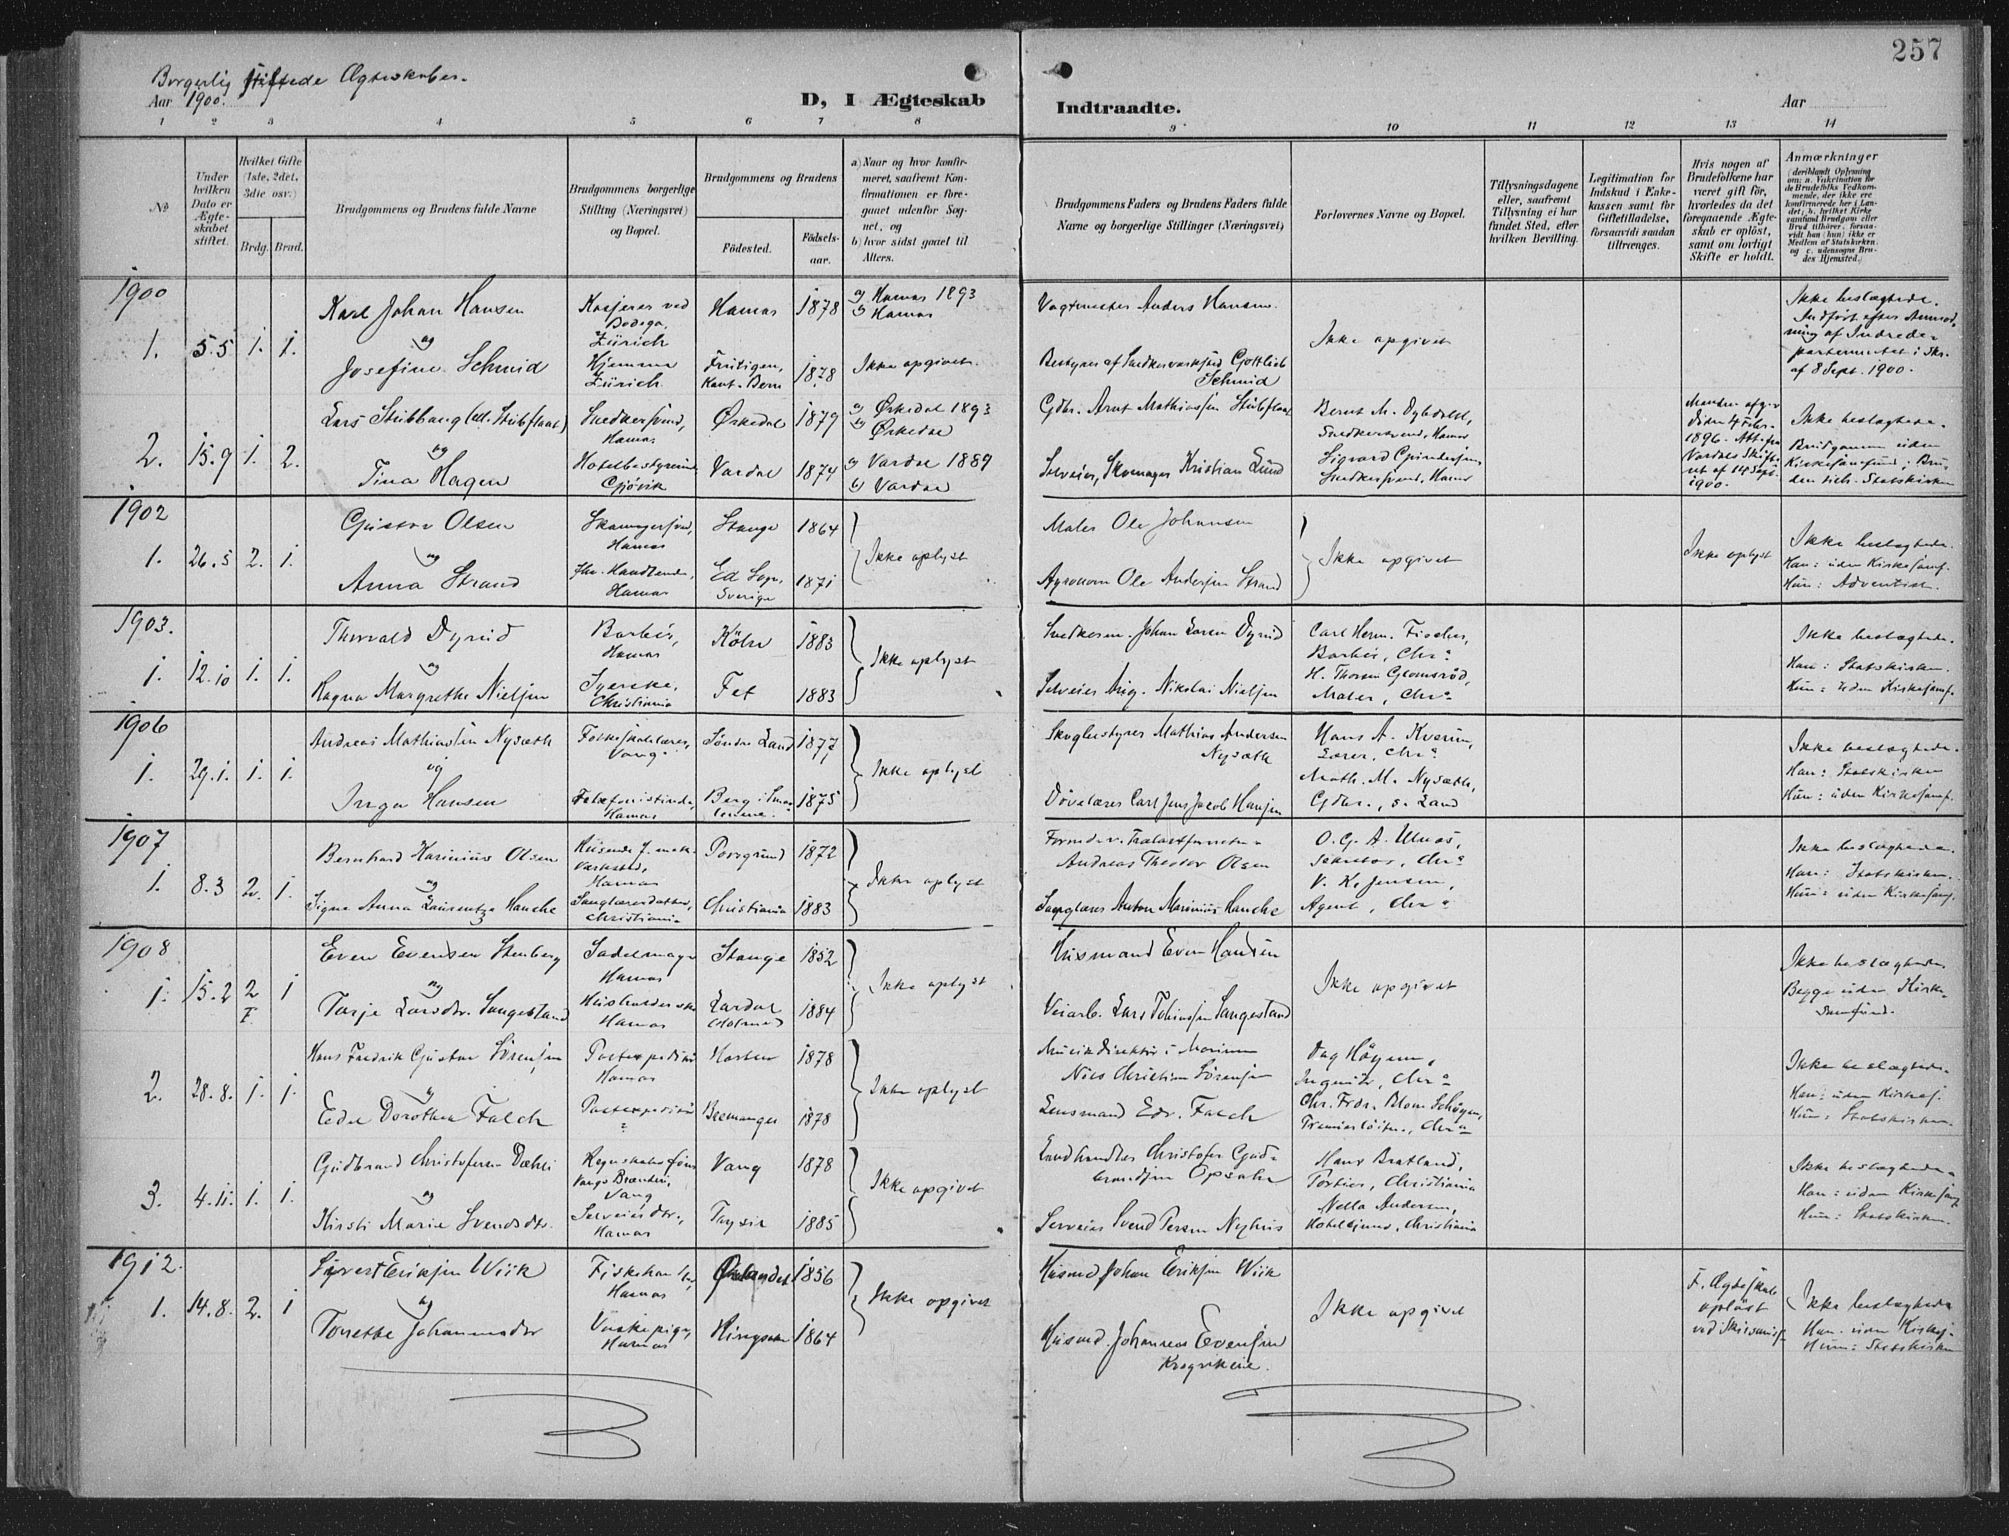 257
Borgerlig stiftede Ægteskaber.
Aar 1900.
D, I Ægteskab
Indtraadte.
Aar
1 2 3 4 5 6 7 8 9 10 11 12 13 14
№
Under hvilken Dato er Ægteskabet stiftet.
Hvilket Gifte (1ste, 2det, 3die osv.)
Brdg. Brud.
Brudgommens og Brudens fulde Navne
Brudgommens borgerlige Stilling (Næringsvei) og Bopæl.
Brudgommens og Brudens
Fødested.
Fødselsaar.
a) Naar og hvor konfirmeret, saafremt Konfirmationen er foregaaet udenfor Sognet, og
b) hvor sidst gaaet til Alters.
Brudgommens Faders og Brudens Faders fulde Navne og borgerlige Stillinger (Næringsvei)
Forlovernes Navne og Bopæl.
Tillysningsdagene eller, saafremt Tillysning ei har fundet Sted, efter hvilken Bevilling.
Legitimation for Indskud i Enkekassen samt for Giftetilladelse, forsaavidt saadan tiltrænges.
Hvis nogen af Brudefolkene har været gift før, hvorledes da det foregaaende Ægteskab er opløst, samt om lovligt Skifte er holdt.
Anmærkninger
(deriblandt Oplysning om: a. Vakcination for de Brudefolks Vedkommende, der ikke ere konfirmerede her i Landet; b. hvilket Kirkesamfund Brudgom eller Brud tilhører, forsaavidt han (hun) ikke er Medlem af Statskirken, og c. udensogns Brudes Hjemsted.)
1900
1. 5.5 1. 1.
Karl Johan Hansen
og
Josefine Schmid
Kasjerer ved Bodega, Zürich
Hjemme Zürich
Hamar 1878
Frutigen, Kant. Bern 1878
a) Hamar 1893
b) Hamar
Ikke opgivet.
Vagtmester Anders Hansen
Bestyrer af Snedkerverksted Gottlieb Schmid
Ikke opgivet
Ikke beslægtede.
Indført efter Anmodning af Indredepartementet i Skr. af 8 Sept. 1900.
2. 15.9 1. 2.
Lars Stubhaug (el. Stubflaat)
og
Tina Hagen
Snedkersvend, Hamar
Hotelbestyrerinde Gjøvik
Ørkedal 1879
Vardal 1874
a) Ørkedal 1893
b) Ørkedal
a) Vardal 1889
b) Vardal
Gdbr. Arnt Mathiassen Stubflaat
Selveier, Skomager Kristian Lund
Bernt M. Dybdahl, Snedkersvend, Hamar
Sigvard Gundersen, Snedkersvend, Hamar
Manden afgik Døden 4 Febr. 1896. Att. fra Vardals Skifteret af 14 Sept. 1900.
Ikke beslægtede.
Brudgommen uden Kirkesamfund; Bruden tilh. Statskirken
1902
1. 26.5 2. 1.
Gustav Olsen
og
Anna Strand
Skomagersvend, Hamar
Hamar
Stange 1864
Ed Sogn, Sverige 1871
Ikke oplyst
Maler Ole Johansen
Agronom Ole Andersen Strand
Ikke opgivet
Ikke oplyst
Ikke beslægtede.
Han: uden Kirkesamf.
Hun: Adventist.
1903.
1. 12.10 1. 1.
Thorvald Dyrud
og
Ragna Margrethe Nielsen
Barber, Hamar
Syerske, Christiania
Köln 1883
Fet 1883
Ikke oplyst
Snedkerm. Johan Laren Dyrud
Selveier Aug. Nikolai Nielsen
Carl Herm. Fischer, Barber, Chr.a
H. Thorsen Glomsrød, Maler, Chr.a
Ikke beslægtede.
Han: Statskirken.
Hun: Uden Kirkesamf.
1906
1. 29.1. 1. 1.
Andreas Mathiassen Nysæth
og
Inga Hansen
Folkeskolelærer, Vang.
Telefonistinde, Hamar
Søndre Land 1877
Berg i Smaalenene 1875
Ikke oplyst
Skogbestyrer Mathias Andersen Nysæth
Døvelærer Carl Jens Jacob Hansen
Hans A. Kverum, Lærer, Chr.a
Math. M. Nysæth, Gdbr., S. Land
Ikke beslægtede.
Han: Statskirken
Hun: uden Kirkesamf.
1907
1. 8.3 2. 1.
Bernhard Marinius Olsen
og
Signe Anna Laurentze Hanche
værksted, Hamar
Sanglærerdatter, Christiania
Porsgrund 1872
Christiania 1883
Ikke oplyst
Formd. v. Trælastforretn.
Andreas Theodor Olsen
Sanglærer Anton Marinius Hanche
O. G. A. Ulnæs, Sekretær, Chr.a
V. K. Jensen, Agent, Chr.a
Ikke beslægtede.
Han: Statskirken.
Hun: uden Kirkesamf.
1908
1. 15.2 2 1
Even Evensen Stenberg
og
Tarje Larsdtr. Sangestand
Sadelmager Hamar
Husholderske Hamar
Stange 1852
Lardal 1884
Ikke oplyst
Husmand Even Hansen
Veiarb. Lars Tobiassen Sangestand
Ikke opgivet
Ikke beslægtede
Begge uden Kirkesamfund.
2. 28.8. 1. 1.
Hans Fredrik Gustav Sørensen
og
Edel Dorothea Falch
Postexpeditør Hamar
Postexpeditør
Horten 1878
Bremanger 1878
Ikke oplyst
Musikdirektør i Marinen
Niels Christian Sørensen
Lensmand Edv. Falch
Dag Høyem, Ingeniør, Chr.a
Chr. Frdr. Blom Schøyen, Premierløitn., Chr.a
Ikke beslægtede.
Han: uden Kirkesf.
Hun: Statskirken
3. 4.11. 1. 1.
Gudbrand Christofersen Dæhli
og
Kirsti Marie Svendsdtr.
Regnskabsfører Vangs Brænderi, Vang
Selveierdtr., Hamar
Vang 1878
Trysil 1885
Ikke opgivet
Landhandler Christofer Gudbrandsen Opsahl
Selveier Svend Persen Nyhus
Hans Bratland, Portier, Christiania
Nella Andersen, Christiania
Ikke beslægtede.
Han: uden Kirkesamf
Hun: Statskirken.
1912.
1. 14.8. 2. 1
Syvert Eriksen Wiik
og
Torette Johannesdtr
Fiskehandler, Hamar
Vaskepige, Hamar
Ørlandet 1856
Ringsaker 1864
Ikke opgivet
Husmd Johan Eriksen Wiik
Husmd. Johannes Evensen Krogvikeie.
Ikke opgivet
F. Ægteskab opløst ved Skilsmisse
Ikke beslægtede
Han. uden Kirkesf.
Hun: Statskirken